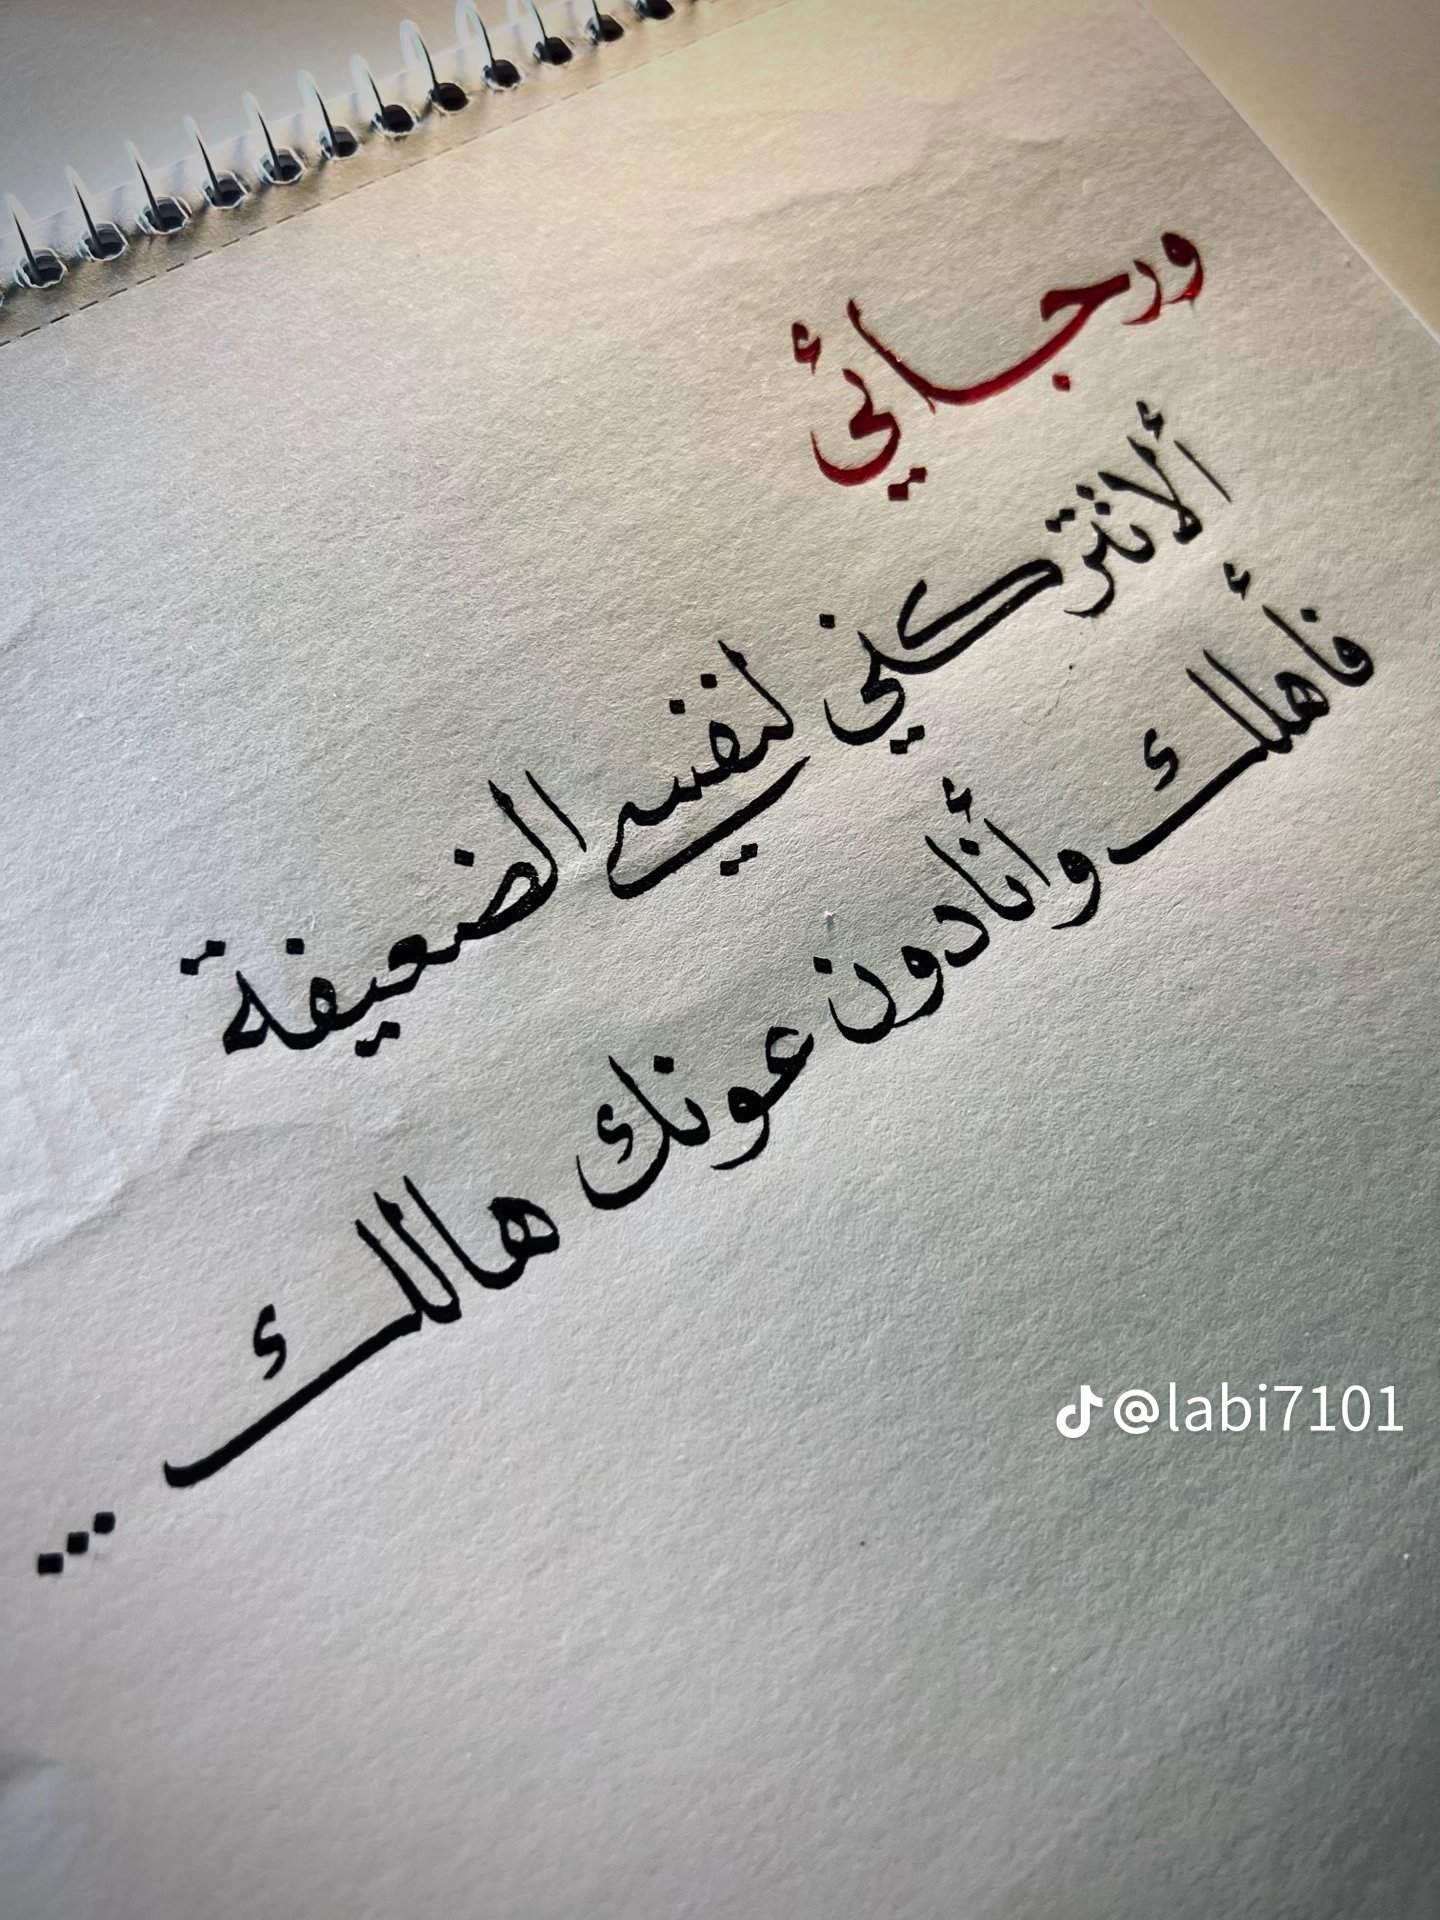 ورجائي
ألا تتركني لنفسي الضعيفة
فأهلك وأنا دون عونك هالك...
@labi7101